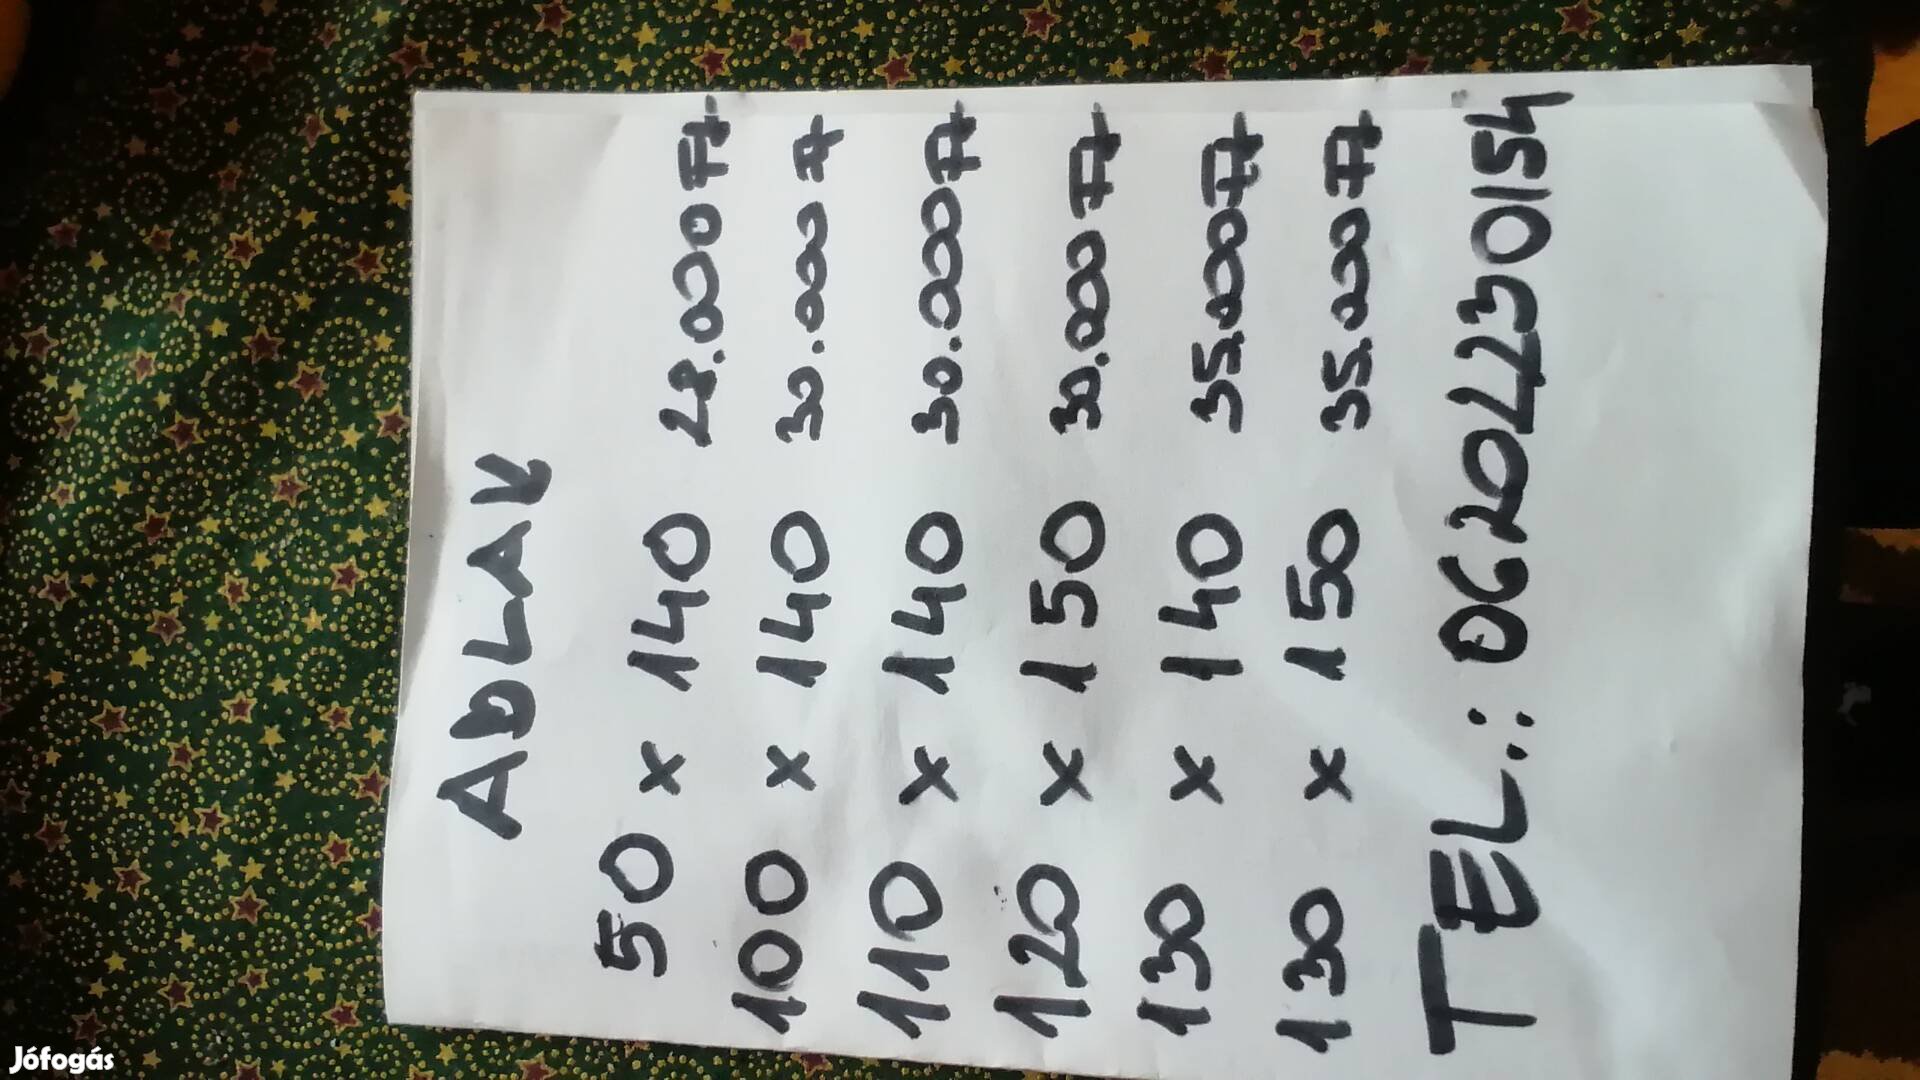 ABLAK
50 x 140 28.000 Ft
100 x 140 30.000 Ft
110 x 140 30.000 Ft
120 x 150 30.000 Ft
130 x 140 35.000 Ft
130 x 150 35.000 Ft
TEL.: 06204230154
Jófogás